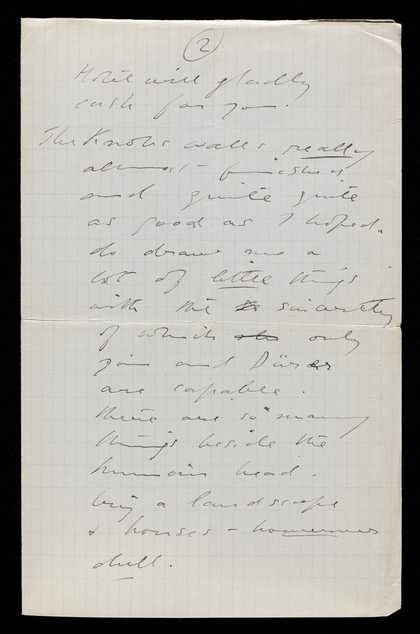 2
Hotel will gladly
cash for you.
The Knolls walls really
almost finished
and quite quite
as good as I hoped.
do draw me a
lot of little things
with the sincerity
of which only
you and Dürer
are capable.
there are so many
things beside the
human head.
big a landscape
& houses - however
dull.